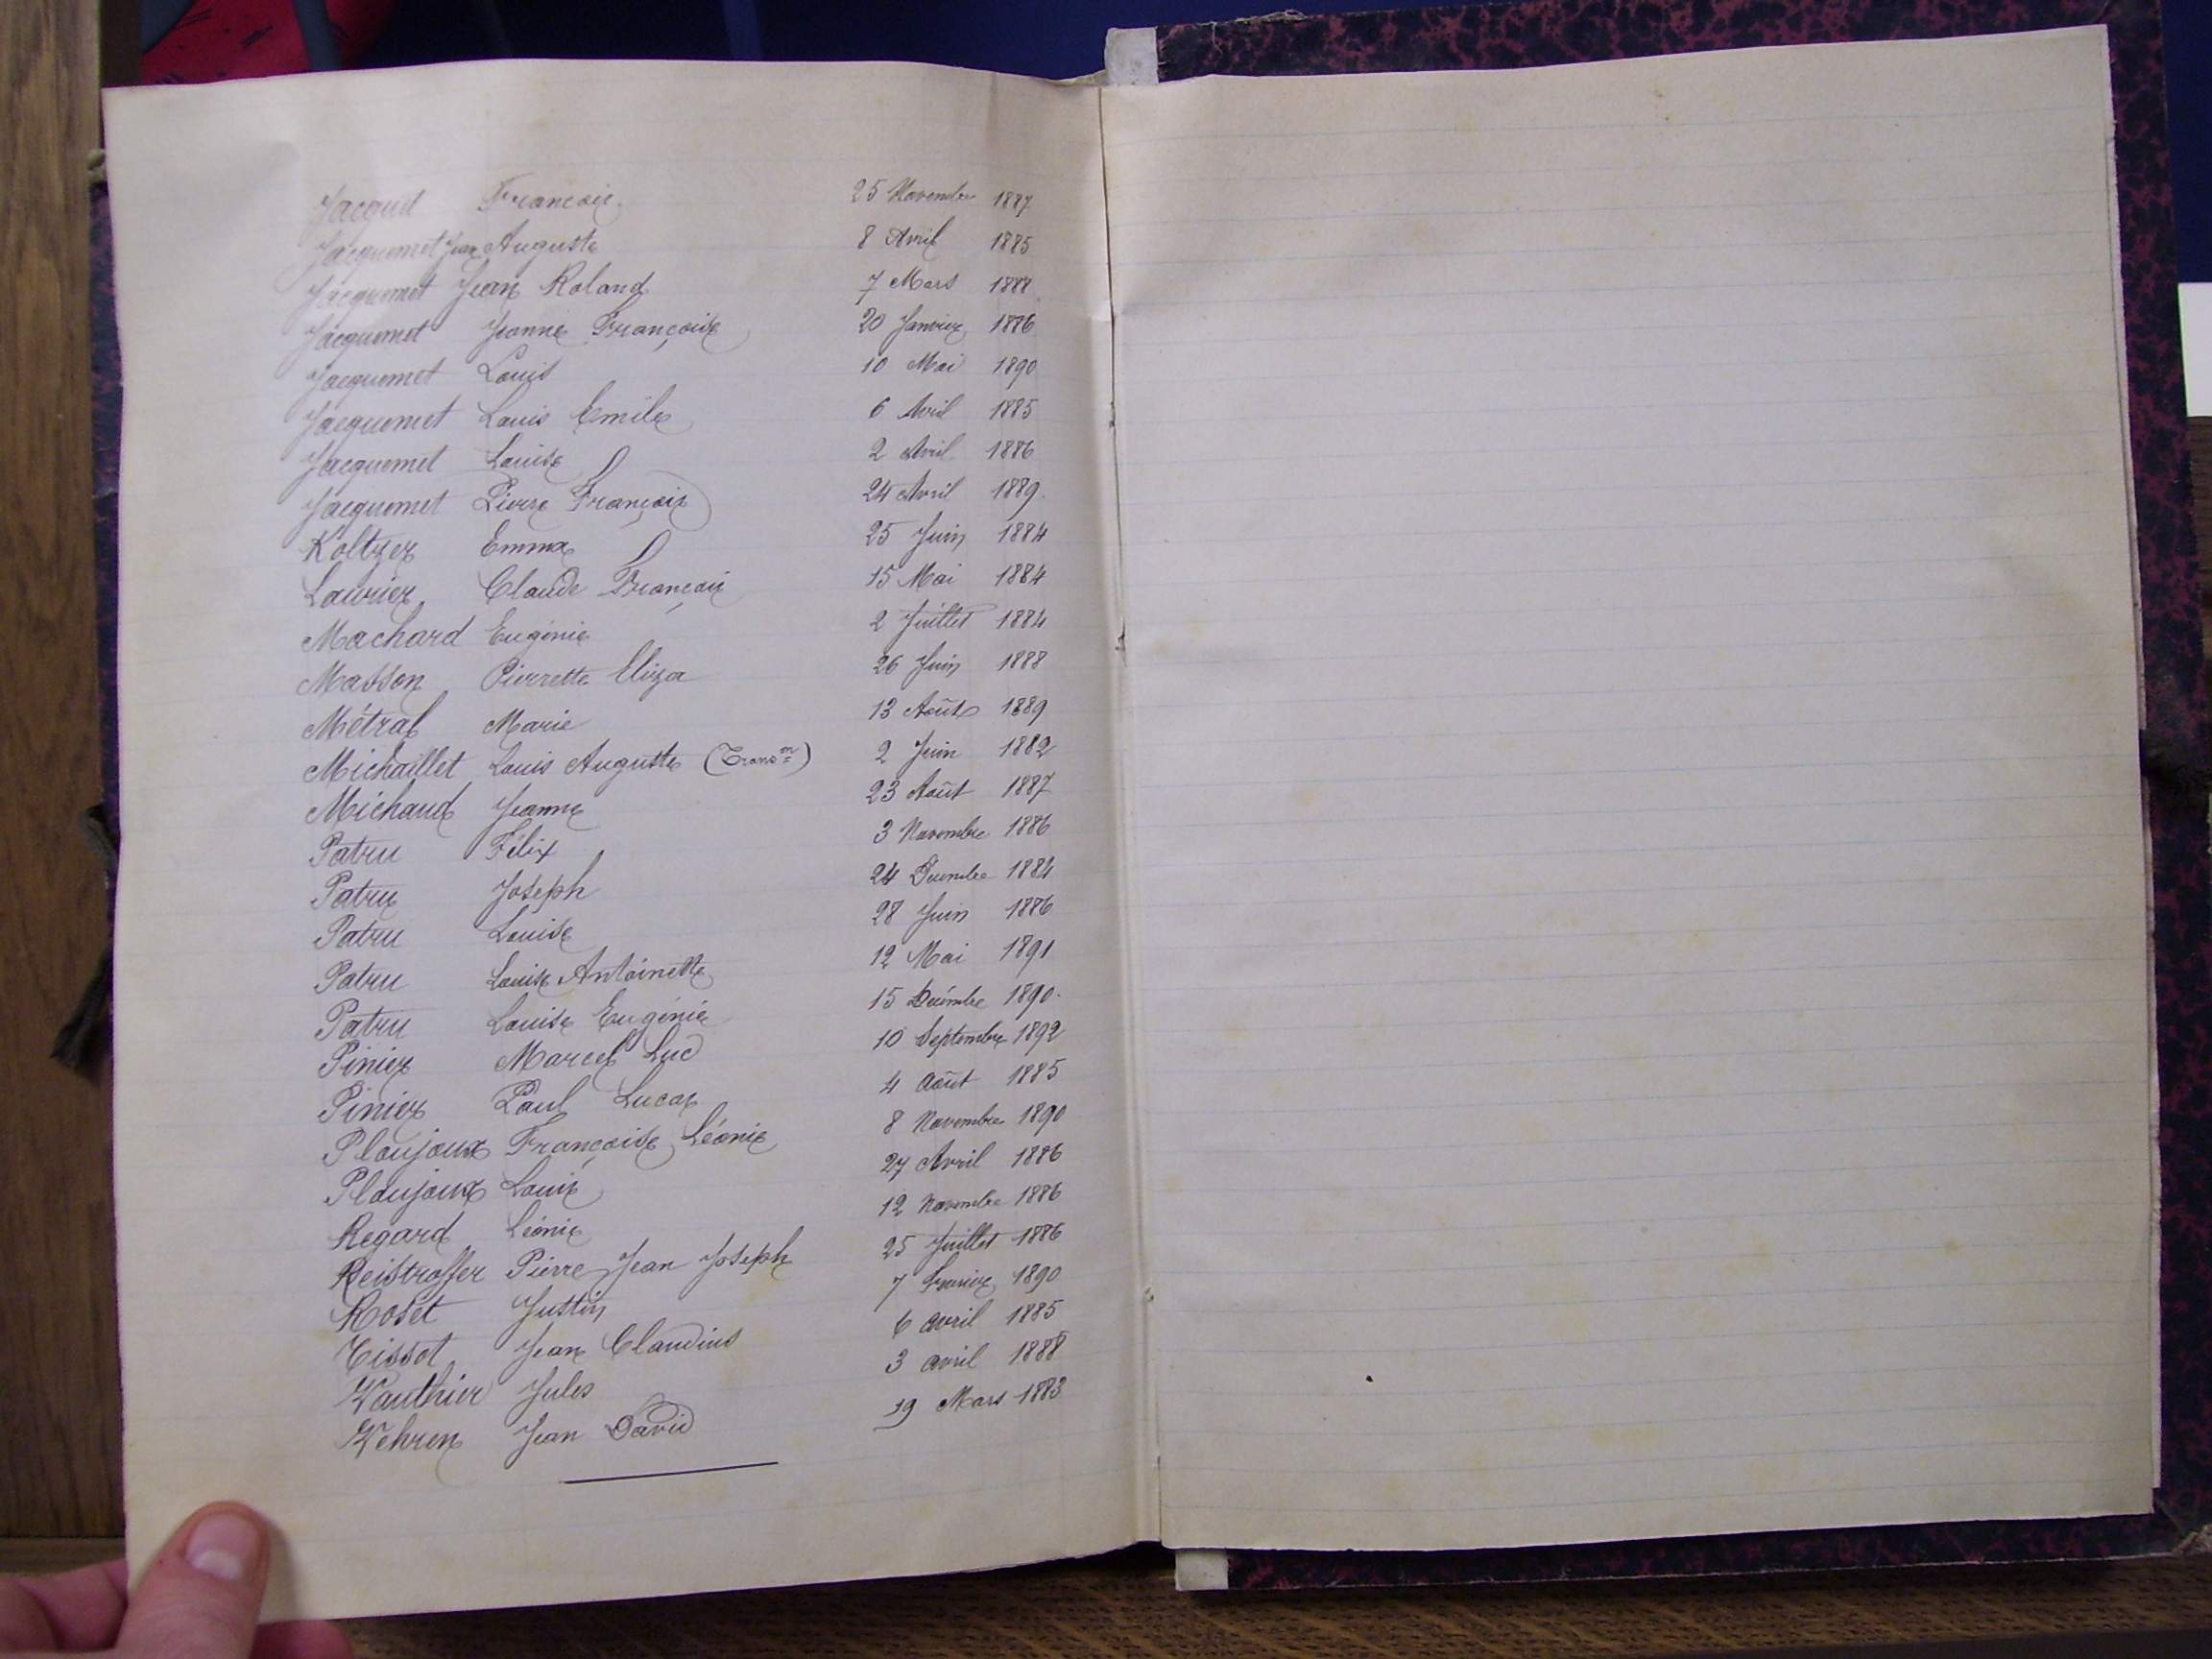 Jacquet François 25 Novembre 1887
Jacquemet Jean Auguste 8 Avril 1885
Jacquemet Jean Roland 7 Mars 1888
Jacquemet Jeanne Françoise 20 Janvier 1886
Jacquemet Louis 10 Mai 1890
Jacquemet Louis Emile 6 Avril 1885
Jacquemet Louise 2 Avril 1886
Jacquemet Pierre François 24 Avril 1889
Koltzer Emma 25 Juin 1884
Laurier Claude François 15 Mai 1884
Machard Eugénie 2 Juillet 1884
Masson Pierrette Eliza 26 Juin 1888
Métral Marie 13 Août 1889
Michaillet Louis Auguste (Trans.on) 2 Juin 1882
Michaud Jeanne 23 Août 1887
Patru Félix 3 Novembre 1886
Patru Joseph 24 Décembre 1884
Patru Louise 28 Juin 1886
Patru Louise Antoinette 12 Mai 1891
Patru Louise Eugénie 15 Décembre 1890.
Pinier Marcel Luc 10 Septembre 1892
Pinier Paul Lucas 4 août 1885
Ploujoux Françoise Léonie 8 Novembre 1890
Ploujoux Louis 27 Avril 1886
Regard Léonie 12 Novembre 1886
Reistroffer Pierre Jean Joseph 25 Juillet 1886
Roset Justin 7 Février 1890
Tissot Jean Claudius 6 avril 1885
Vauthier Jules 3 avril 1888
Wehren Jean David 19 Mars 1883